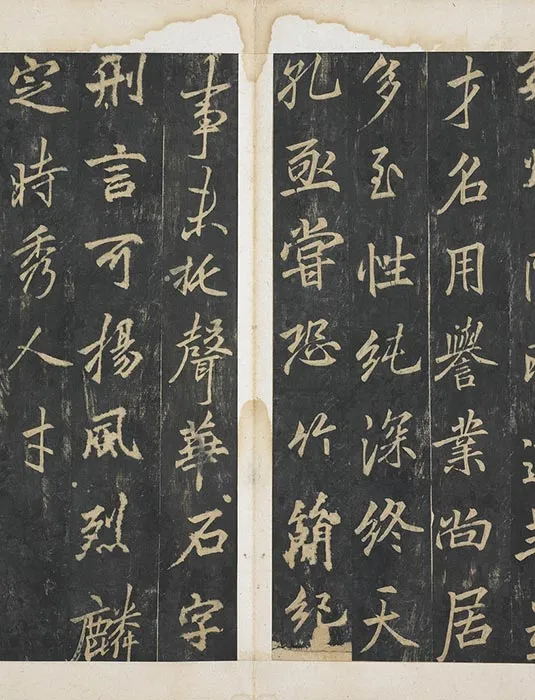 才名用譽業尚居
多至性純深終天
孔亟嘗恐竹簡紀
事未托聲華石字
刑言可揚風烈麟
定時秀人才